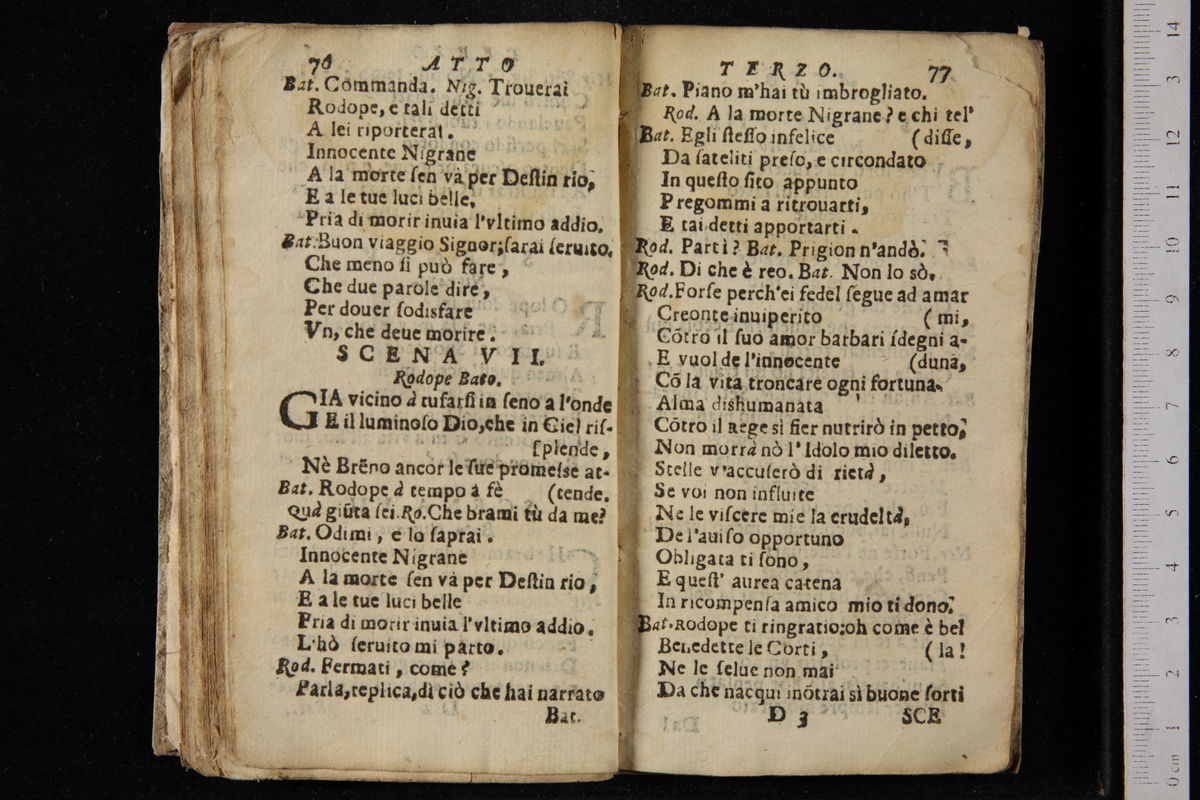 76 ATTO
Bat. Commanda. Nig. Trouerai
Rodope, e tali detti
A lei riporterai.
Innocente Nigrane
A la morte ſen và per Deſtin rio,
E a le tue luci belle,
Pria di morir inuia l'vltimo addio.
Bat. Buon viaggio Signor; ſarai ſeruito.
Che meno ſi può fare,
Che due parole dire,
Per douer ſodisfare
Vn, che deue morire.
SCENA VII.
Rodope Bato.
GIA vicino à tufarſi in ſeno a l'onde
E il luminoſo Dio, che in Ciel riſ-
ſplende,
Nè Brēno ancor le ſue promeſse at-
Bat. Rodope à tempo à fè (tende.
Quà giūta ſei. Ro. Che brami tù da me?
Bat. Odimi, e lo ſaprai.
Innocente Nigrane
A la morte ſen và per Deſtin rio,
E a le tue luci belle
Pria di morir inuia l'vltimo addio.
L'hò ſeruito mi parto.
Rod. Fermati, come?
Parla, replica, dì ciò che hai narrato
Bat.
TERZO. 77
Bat. Piano m'hai tù imbrogliato.
Rod. A la morte Nigrane? e chi tel'
Bat. Egli ſteſſo infelice (diſſe,
Da ſateliti preſo, e circondato
In queſto ſito appunto
Pregommi a ritrouarti,
E tai detti apportarti.
Rod. Partì? Bat. Prigion n'andò.
Rod. Di che è reo. Bat. Non lo sò.
Rod. Forſe perch'ei fedel ſegue ad amar
Creonte inuiperito (mi,
Cōtro il ſuo amor barbari ſdegni a-
E vuol de l'innocente (duna,
Cō la vita troncare ogni fortuna.
Alma dishumanata
Cōtro il Rege sì fier nutrirò in petto;
Non morrà nò l'Idolo mio diletto.
Stelle v'accuſerò di rietà,
Se voi non influite
Ne le viſcere mie la crudeltà,
De l'auiſo opportuno
Obligata ti ſono,
E queſt' aurea catena
In ricompenſa amico mio ti dono.
Bat. Rodope ti ringratio; oh come è bel
Benedette le Corti, (la!
Ne le ſelue non mai
Da che nacqui inōtrai sì buone ſorti
D 3 SCE